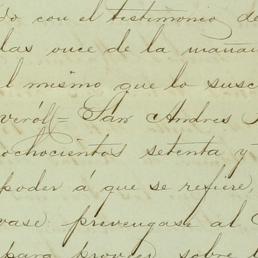 do con el testimonio de
las once de la mañan
l mismo que lo susc
veról = San Andres
ochocientos setenta y
poder á que se refiere,
vase: prevengase al
para proveer sobre l